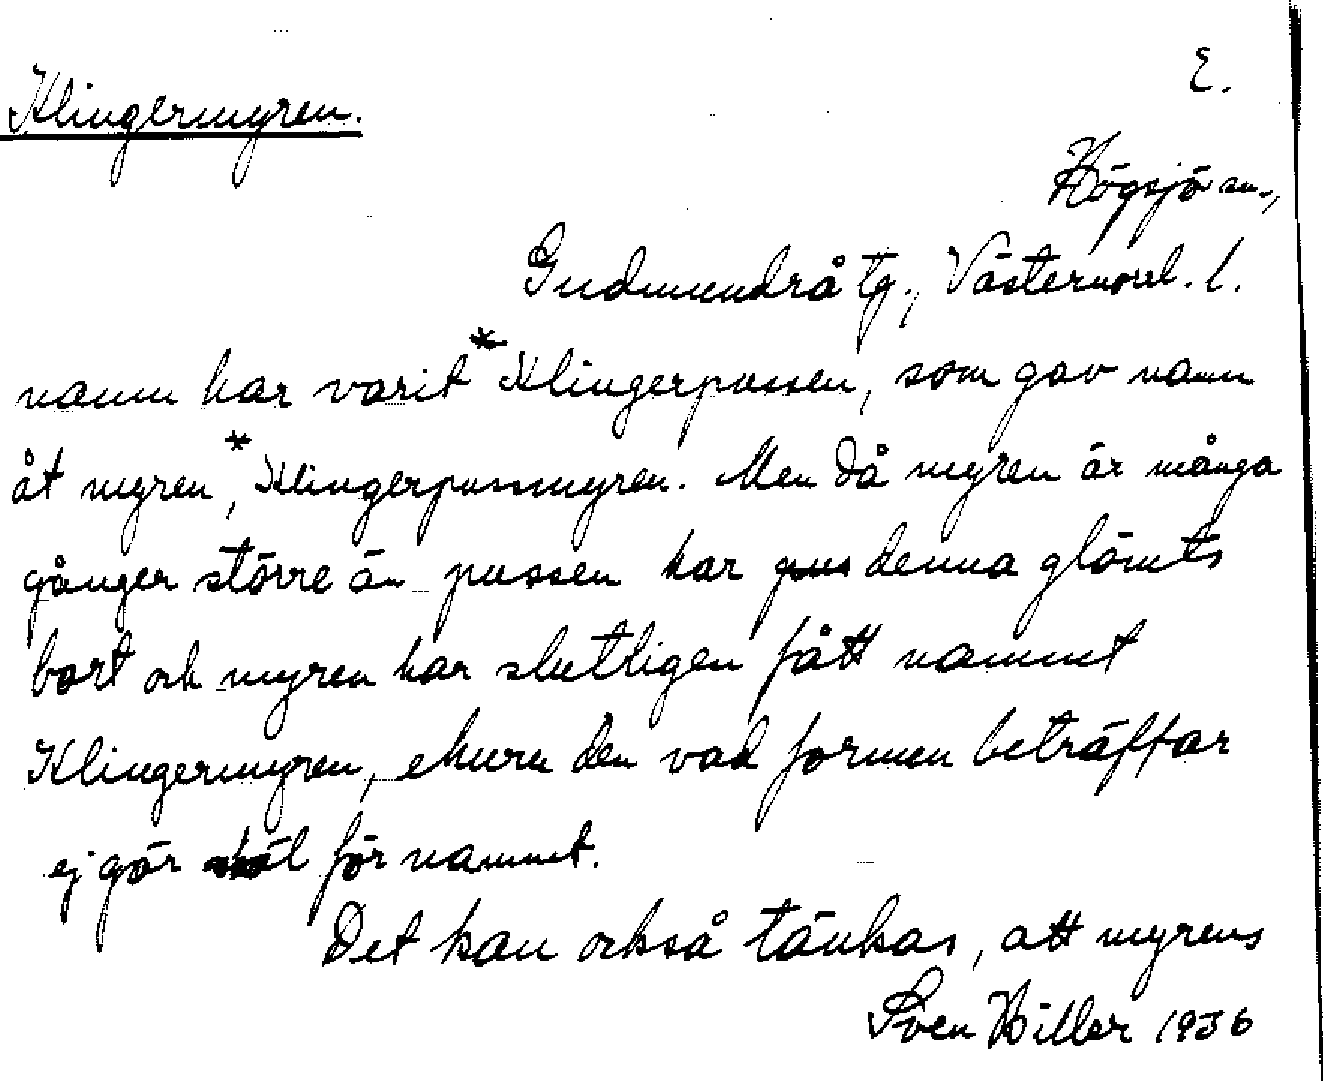 E.
Klingermyren.
Högsjö sn.,
Gudmundrå tg., Västernorrl. l.
namn har varit *Klingerpussen, som gav namn
åt myren, *Klingerpussmyren. Men då myren är många
gånger större än pussen har pus denna glömts
bort och myren har slutligen fått namnet
Klingermyren, ehuru den vad formen beträffar
ej gör skäl för namnet.
Det kan också tänkas, att myrens
Sven Hiller 1936